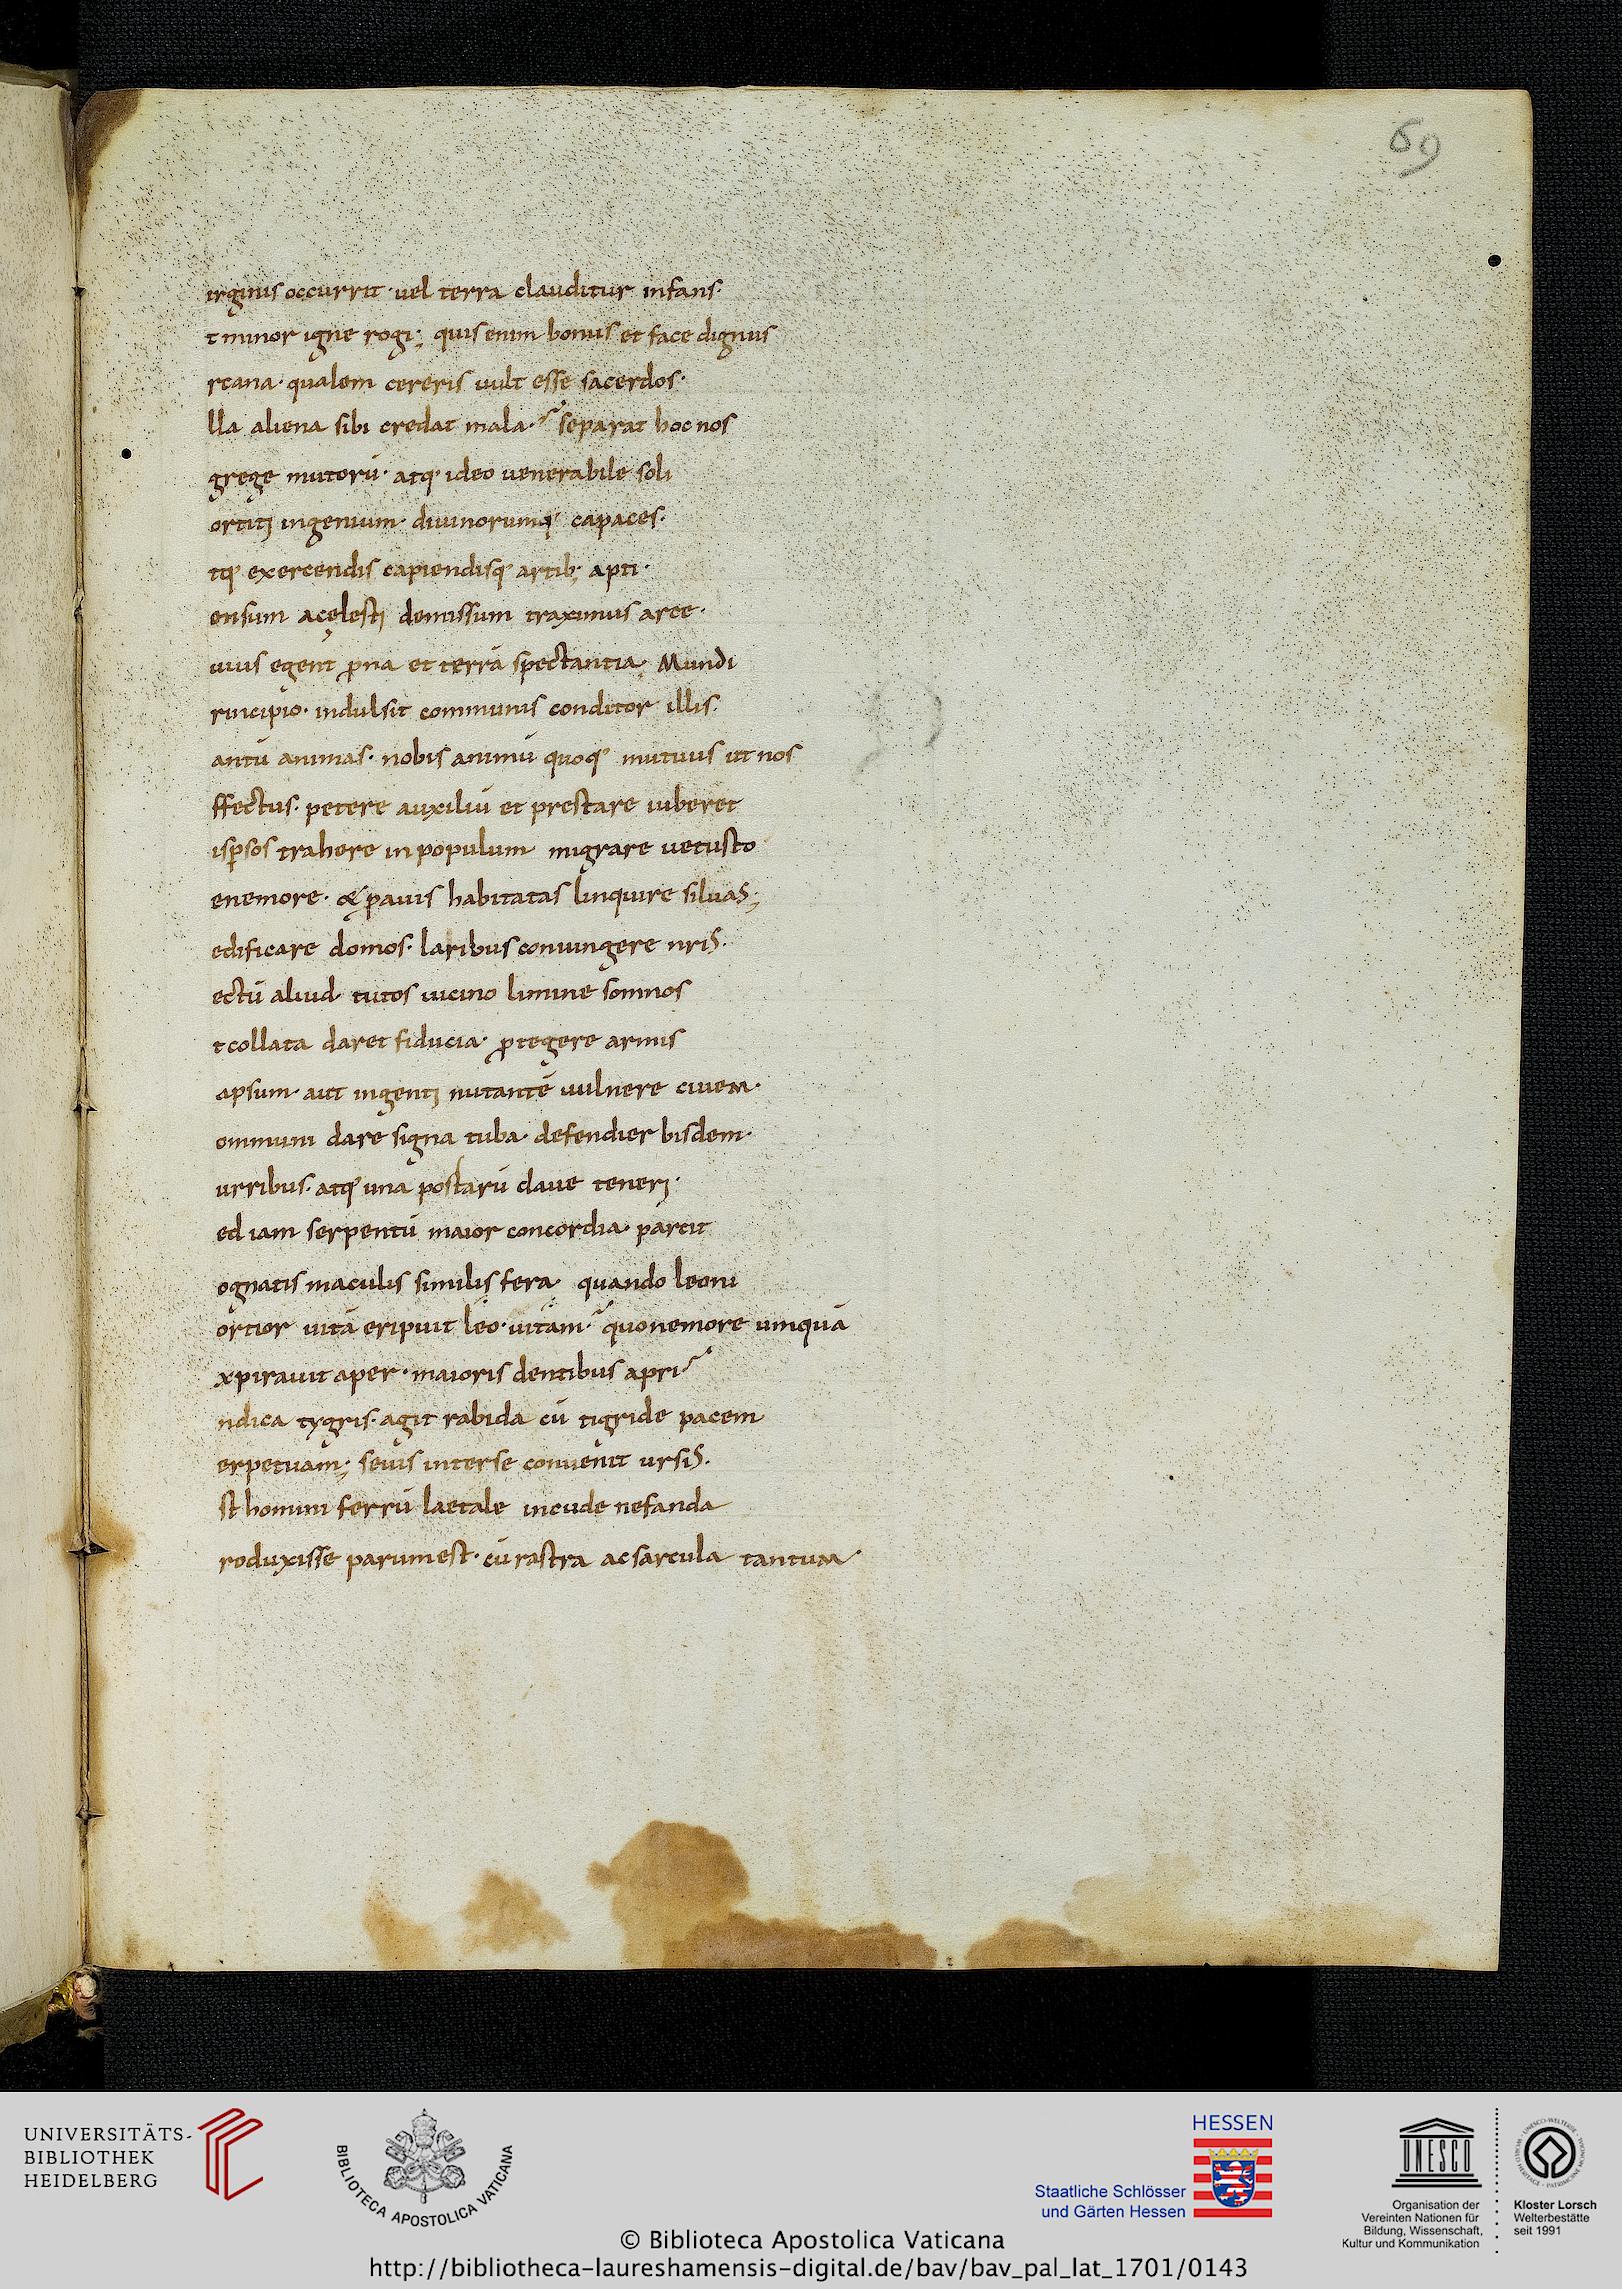 69
irginis occurrit · uel terra clauditur infans ·
t minor igne rogi ; quis enim bonus et face dignus
rcana · qualem cereris uult esse sacerdos ·
lla aliena sibi credat mala · separat hoc nos
grege mutorū · atq· ideo uenerabile soli
ortiti ingenium · diuinorumq· capaces ·
tq· exercendis capiendisq· artib; apti ·
ensum acęlesti demissum traximus arce ·
uius egent ꝓna et terrā spectantia · Mundi
rincipio · indulsit communis conditor illis ·
antū animas · nobis animū quoq· mutuus ut nos
ffectus · petere auxiliū et prestare iuberet
isp̄sos trahere inpopulum migrare uetusto
enemore · & ꝓauis habitatas linquire siluas ;
edificare domos · laribus coniungere nr̄is ·
ectū aliud tutos uicino limine somnos
t collata daret fiducia · ꝓtegere armis
apsum · aut ingenti nutantē uulnere ciuem ·
ommuni dare signa tuba · defendier hisdem ·
urribus · atq· una postarū claue teneri ·
ed iam serpentū maior concordia · parcit
ognatis maculis similis fera quando leoni
ortior uitā eripuit leo · uitam · quonemore umquā
xpirauit aper · maioris dentibus apri
ndica tygris · agit rabida cū tigride pacem
erpetuam ; seuis interse conuenit ursis ·
st homini ferrū laetale incude nefanda
roduxisse parumest · cū rastra ac sarcula tantum ·
UNIVERSITÄTS-
BIBLIOTHEK
HEIDELBERG
BIBLIOTECA APOSTOLICA VATICANA
HESSEN
Staatliche Schlösser
und Gärten Hessen
UNESCO
Organisation der
Vereinten Nationen für
Bildung, Wissenschaft,
Kultur und Kommunikation
Kloster Lorsch
Welterbestätte
seit 1991
© Biblioteca Apostolica Vaticana
http://bibliotheca-laureshamensis-digital.de/bav/bav_pal_lat_1701/0143